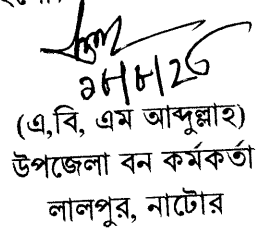 ২৮/৮/২৫
(এ,বি, এম আব্দুল্লাহ)
উপজেলা বন কর্মকর্তা
লালপুর, নাটোর